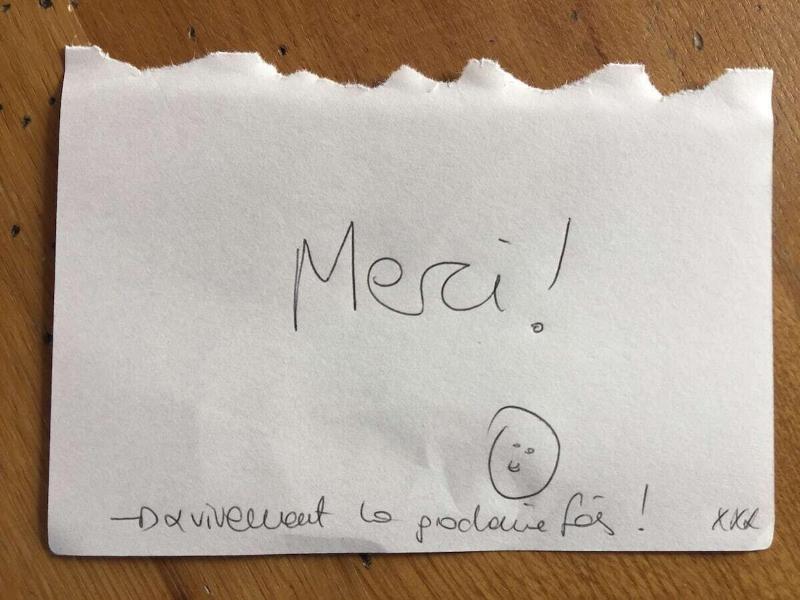 Merci !
→ a vivement la prochaine fois ! xxx